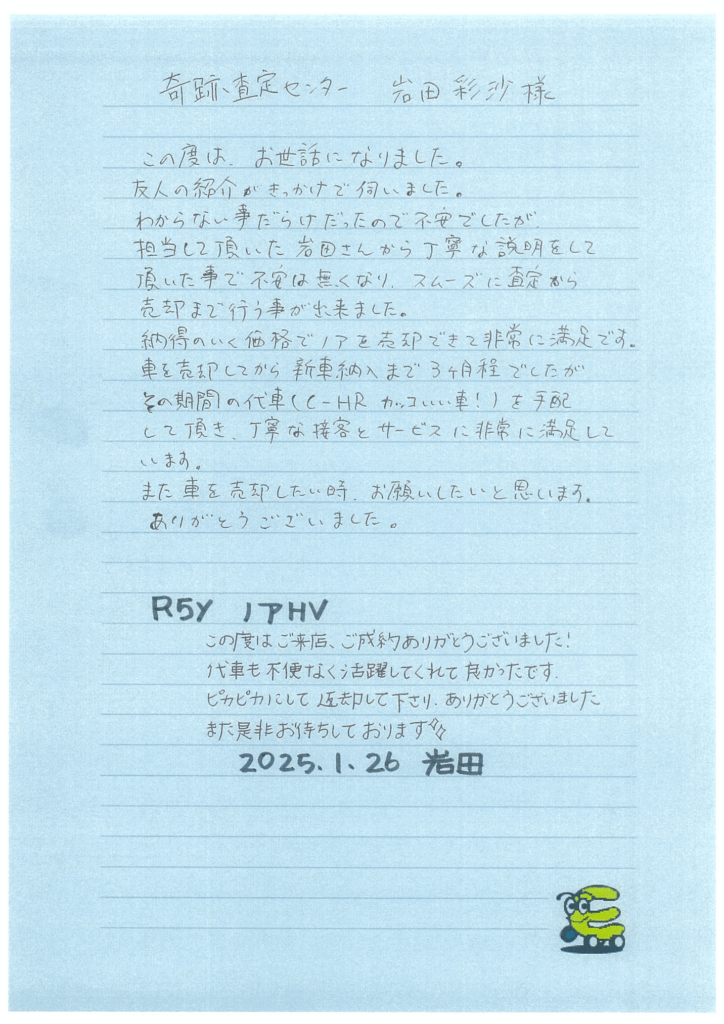 奇跡査定センター 岩田彩沙様
この度は、お世話になりました。
友人の紹介がきっかけで伺いました。
わからない事だらけだったので不安でしたが、
担当して頂いた岩田さんから丁寧な説明をして
頂いた事で不安は無くなり、スムーズに査定から
売却まで行う事が出来ました。
納得のいく価格でノアを売却できて非常に満足です。
車を売却してから新車納入まで3ヶ月程でしたが
その期間の代車(C-HR カッコいい車!)を手配
して頂き、丁寧な接客とサービスに非常に満足して
います。
また車を売却したい時、お願いしたいと思います。
ありがとうございました。
R5Y ノアHV
この度はご来店、ご成約ありがとうございました!
代車も不便なく活躍してくれて良かったです。
ピカピカにして返却して下さり、ありがとうございました
また是非お待ちしております
2025.1.26 岩田